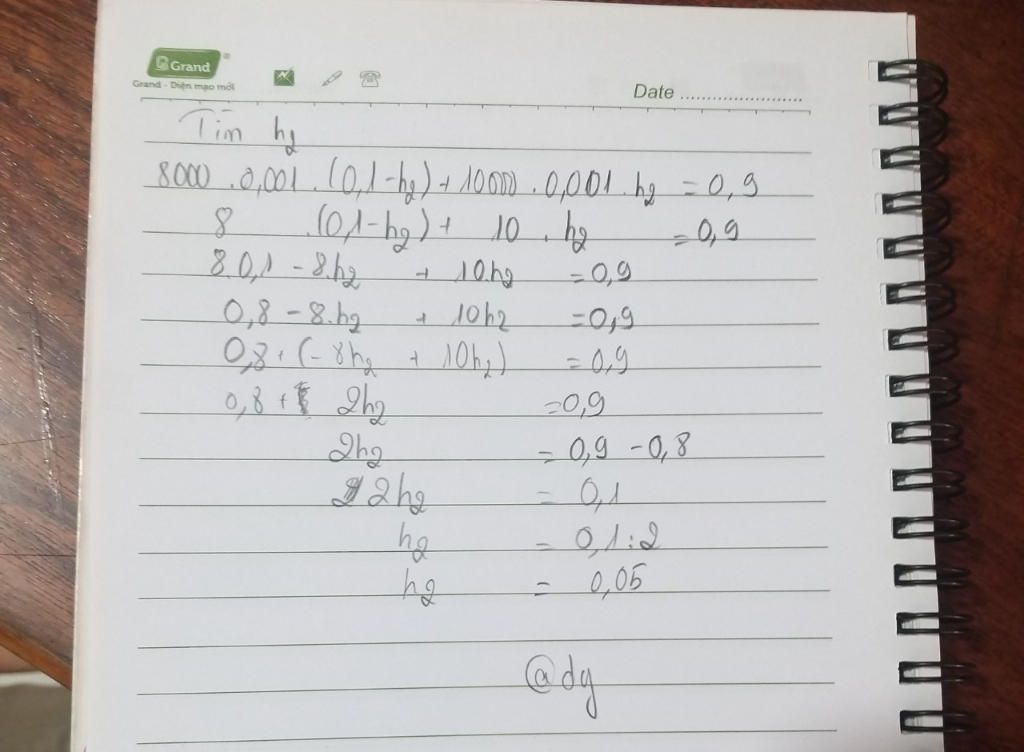 Grand
Grand - Diện mạo mới
Date
Tìm h₂
8000 . 0,001 . (0,1 - h₂) + 10000 . 0,001 . h₂ = 0,9
8 . (0,1 - h₂) + 10 . h₂ = 0,9
8.0,1 - 8.h₂ + 10.h₂ = 0,9
0,8 - 8.h₂ + 10h₂ = 0,9
0,8 + (- 8h₂ + 10h₂) = 0,9
0,8 + 2h₂ = 0,9
2h₂ = 0,9 - 0,8
2h₂ = 0,1
h₂ = 0,1 : 2
h₂ = 0,05
@dy